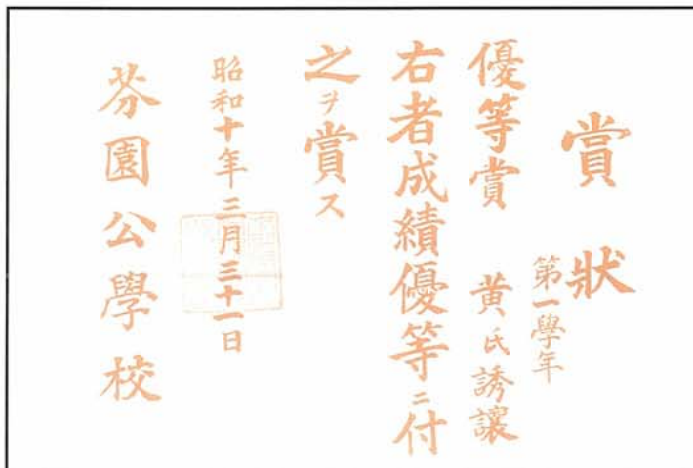 賞狀
第一學年
優等賞 黃氏誘讓
右者成績優等ニ付
之ヲ賞ス
昭和十年三月三十一日
芬園公學校